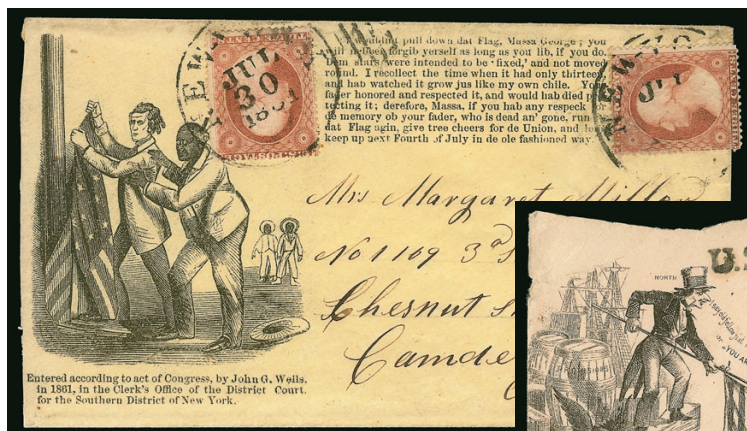 wouldnt pull down dat Flag, Massa George ; you
will nebber forgib yerself as long as you lib, if you do.
Dem stars were intended to be ‘fixed,’ and not moved
round. I recollect the time when it had only thirteen
and hab watched it grow jus like my own chile. Yo
fader honored and respected it, and would hab died p
tecting it; derefore, Massa, if you hab any respeck for
de memory ob your fader, who is dead an' gone, run
dat Flag agin, give tree cheers for de Union, and
keep up next Fourth of July in de ole fashioned way.
NEW
JUL
30
1861
NEW-YO
JU
Mrs Margaret
No 1109 3d
Chesnut
Camde
Entered according to act of Congress, by John G. Wells,
in 1861, in the Clerk's Office of the District Court,
for the Southern District of New York.
U.S
NORTH
YOU AR